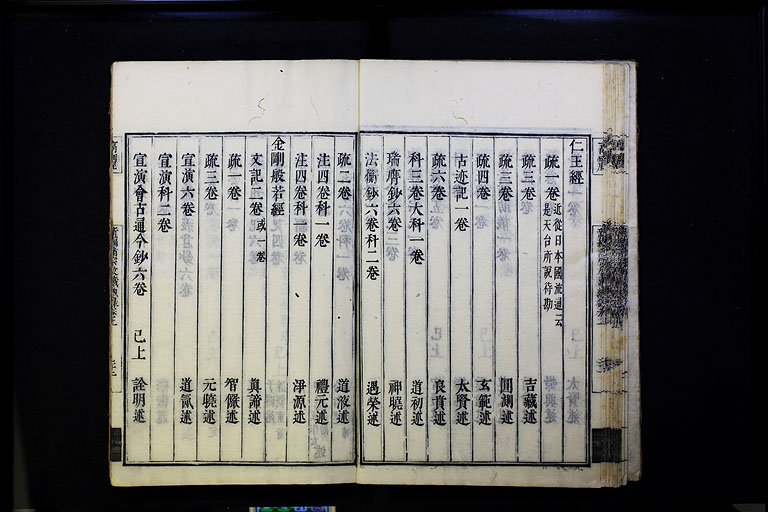 仁王經
疏一卷近從日本國流通云是天台所說待勘
疏三卷 吉藏述
疏三卷 圓測述
疏四卷 玄範述
古迹記一卷 太賢述
疏六卷 良賁述
科三卷大科一卷 道初述
鈔六卷 神曉述
法衡鈔六卷科二卷 遇榮述
疏二卷 道液述
注四卷科一卷 禮元述
注四卷科一卷 淨源述
金剛般若經
文記二卷或一卷 眞諦述
疏一卷 智儼述
疏三卷 元曉述
宣演六卷 道氤述
宣演科二卷
宣演會古通今鈔六卷 已上 詮明述